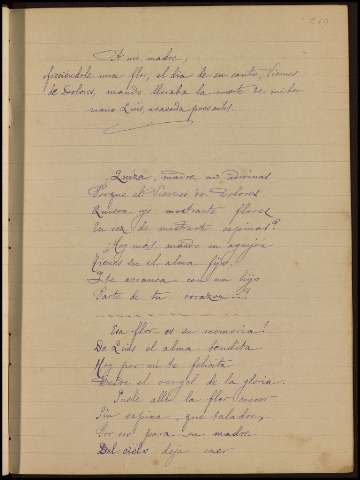 A mi madre,
ofreciéndole una flor, el día de su santo, Viernes
de Dolores, cuando lloraba la muerte de mi her
mano Luis, acaecida poco antes.
Quizá, madre no adivinas
Porque el Viernes de Dolores
Quiera yo mostrarte flores
En vez de mostrarte espinas?
¡Hoy mas, cuando un aguijón
Tienes en el alma fijo
Que arranca con un hijo
Parte de tu corazon!!!
Esa flor es su memoria!
De Luis el alma bendita
Hoy por mi te felicita
Desde el vergel de la gloria.
Suele alli la flor crecer
Sin espina, que taladre,
Por eso para su madre
Del cielo deja caer